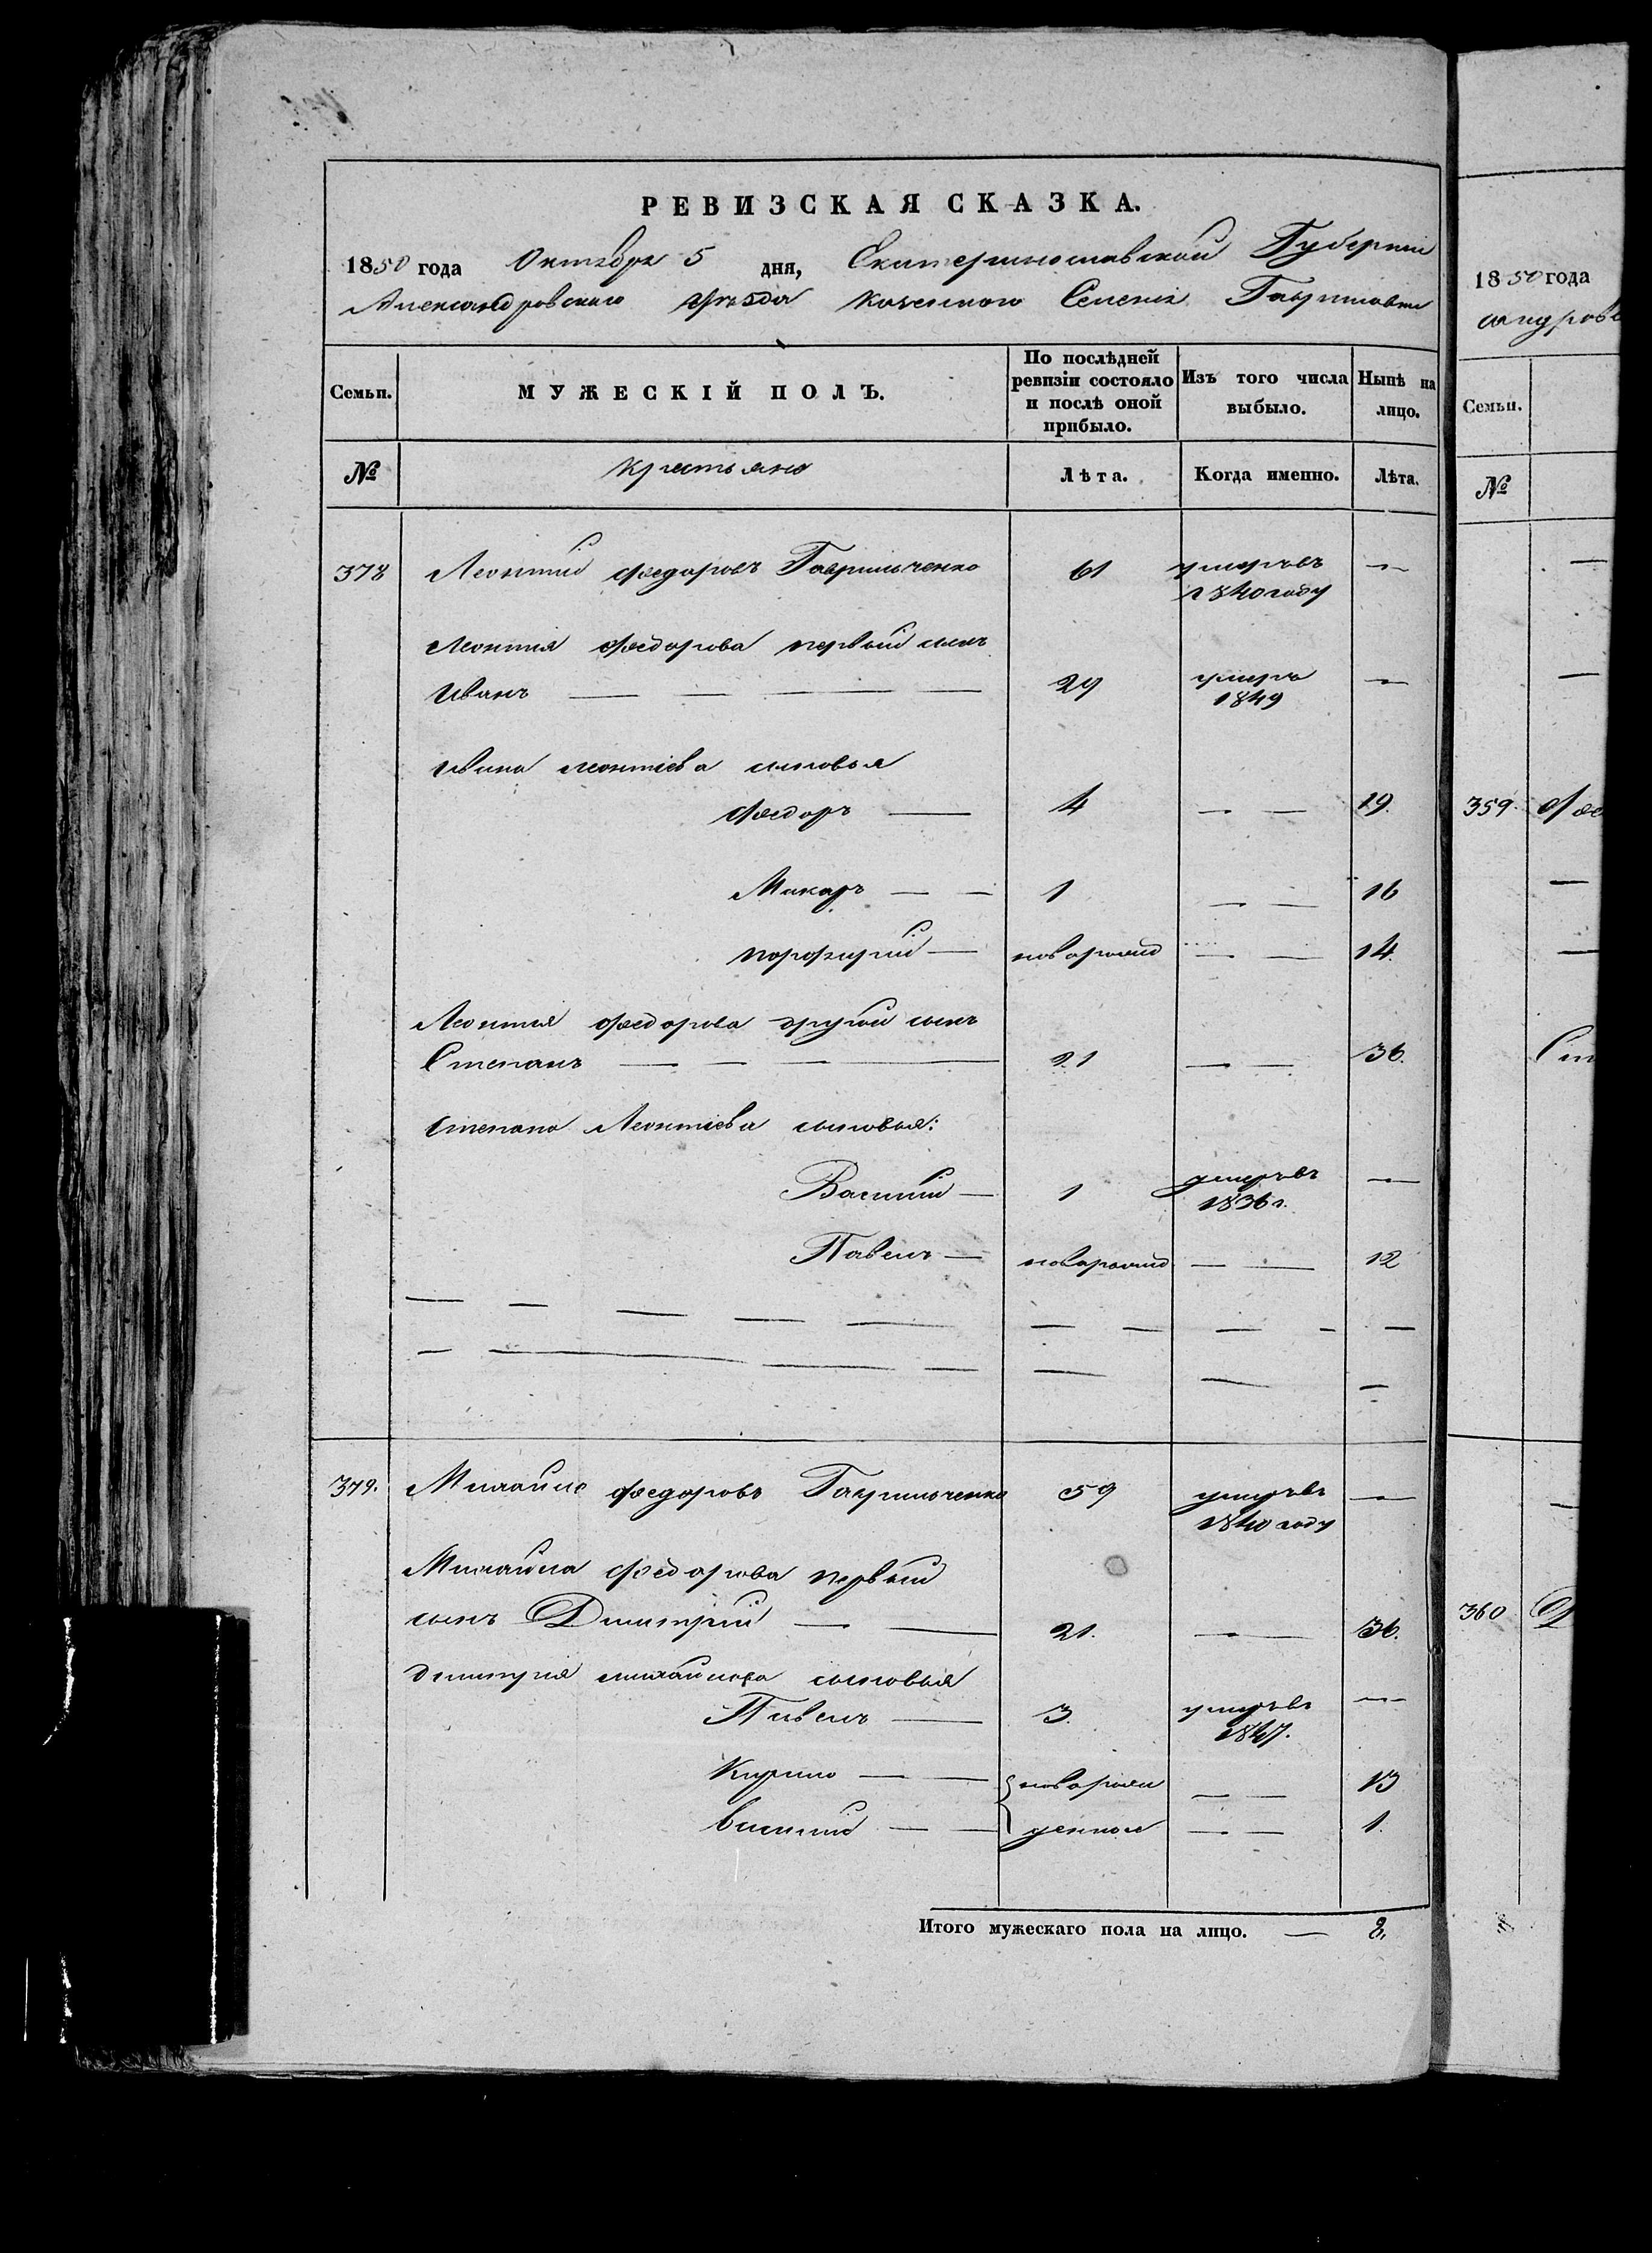 РЕВИЗСКАЯ СКАЗКА.
1850 года Октября 5 дня, Екатеринославской Губернии
Александровского уѣзда казенного Селенія Гавриловки
Семьи. МУЖЕСКІЙ ПОЛЪ. По послѣдней ревизіи состояло и послѣ оной прибыло. Изъ того числа выбыло. Нынѣ на лицо.
№ Крестьяне Лѣта. Когда именно. Лѣта.
378 Леонтий Федоровъ Гаврильченко 61 умерълъ —
1840 году
Леонтия Федорова первый сынъ
Иванъ — — — — 29 умеръ —
1849
Ивана Леонтіева сыновья
Федоръ — 4 — — 19.
Макаръ — — 1 — — 16
порфирий — новорожд — — 14.
Леонтия Федорова другой сынъ
Степанъ — — — — 21 — — 36.
Степана Леонтіева сыновья:
Василий — 1 —
1836 г.
Павелъ — новорожд — — 12
379. Михайло Федоровъ Гаврильченко 59 —
1840 году
Михайла Федорова первый
сынъ Димитрий — — 21. — 36.
Димитрия Михайлова сыновья
Павелъ — 3. —
1847.
Кирило — — новорож — — 13
Василий — — денные — — 1.
Итого мужескаго пола на лицо. — 8.
1850 года
Семьи.
№
359.
360